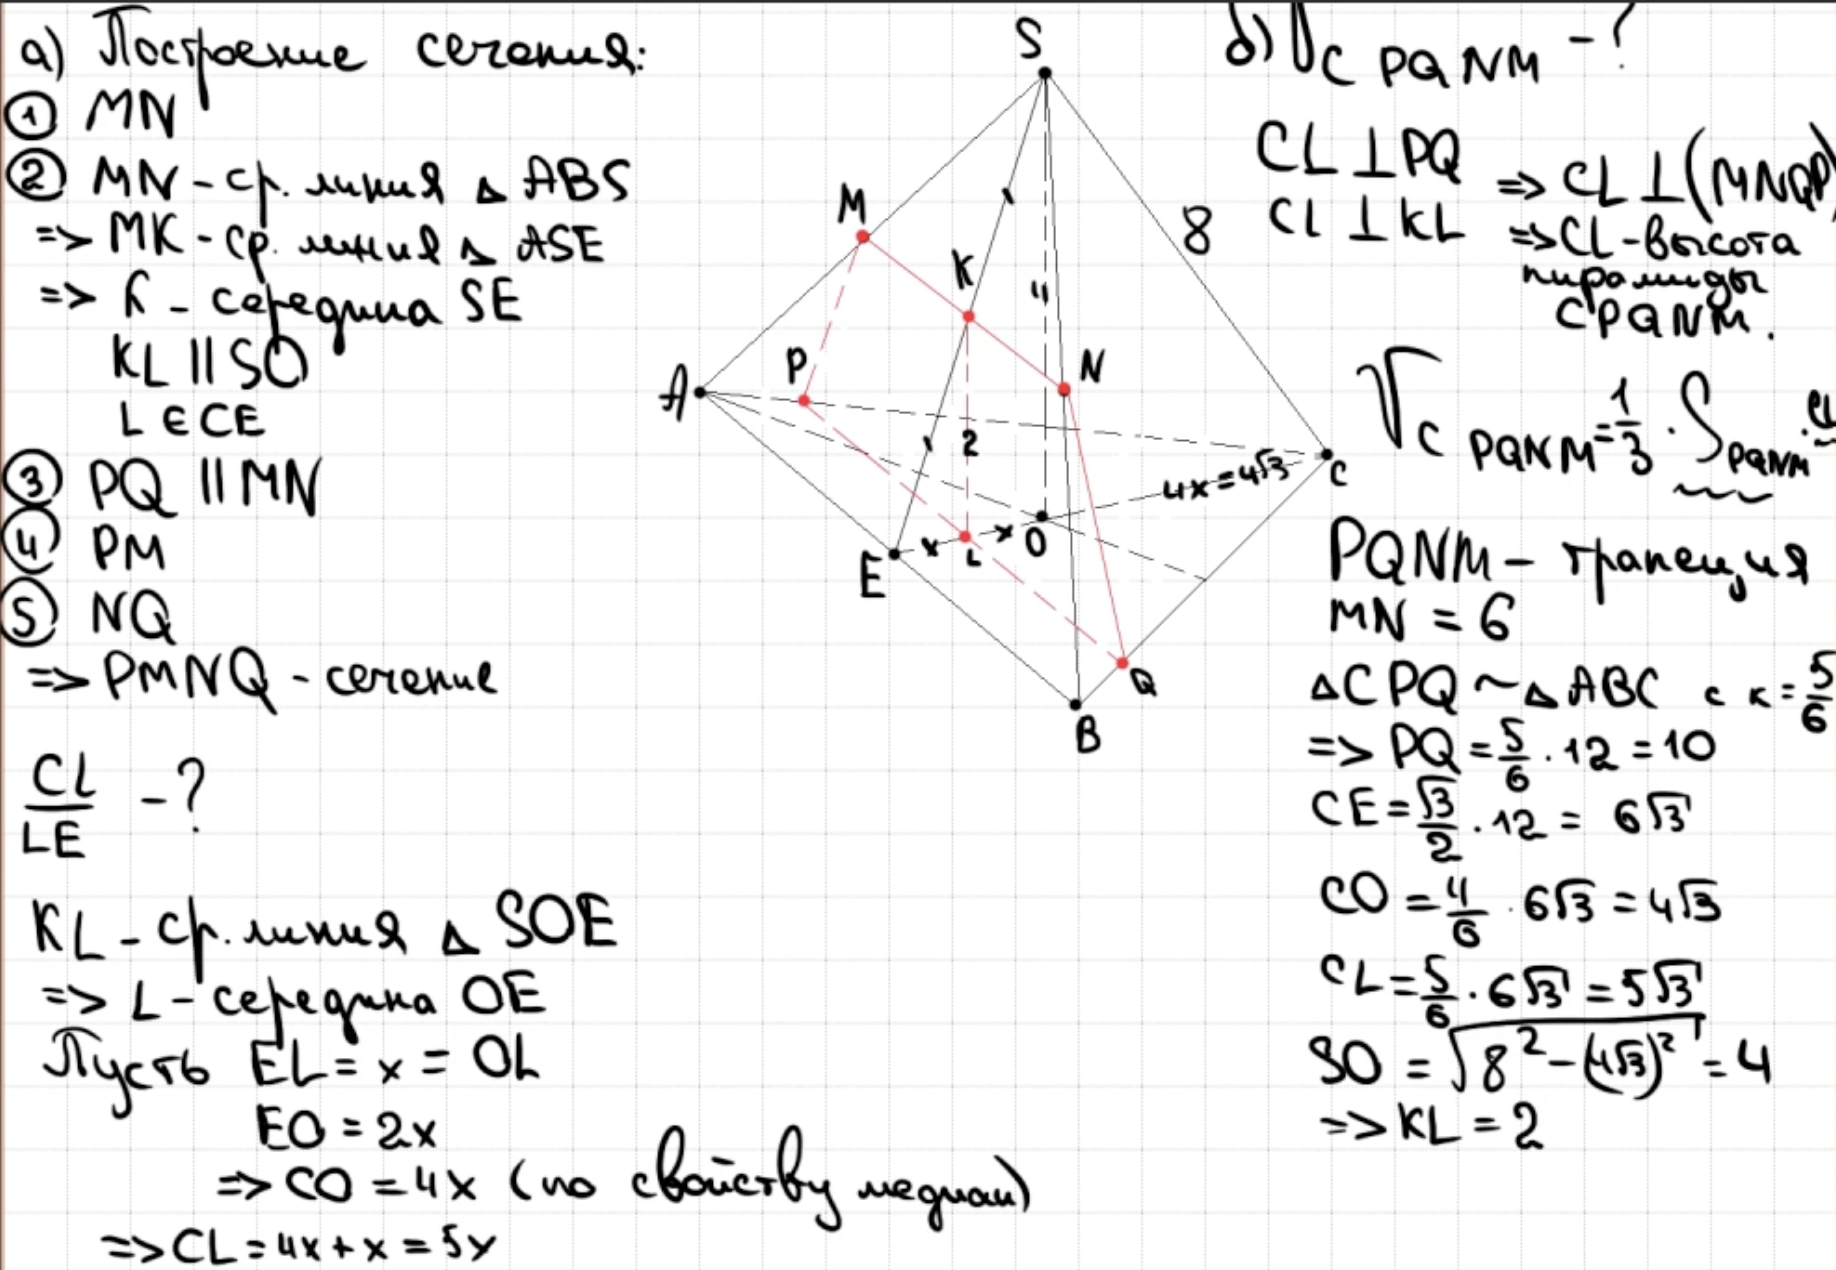 а) Построение сечения:
① MN
② MN - ср. линия △ ABS
=> MK - ср. линия △ ASE
=> K - середина SE
KL || SO
L ∈ CE
③ PQ || MN
④ PM
⑤ NQ
=> PMNQ - сечение
CL/LE - ?
KL - ср. линия △ SOE
=> L - середина OE
Пусть EL = x = OL
EO = 2x
=> CO = 4x (по свойству медиан)
=> CL = 4x + x = 5x
S
M
K
4
8
P
N
A
2
4x = 4√3
C
E
x
L
x
O
Q
B
б) V C PQNM - ?
CL ⊥ PQ
CL ⊥ KL
=> CL ⊥ (MNQP)
=> CL - высота
пирамиды
CPQNM.
V C PQNM = 1/3 · S PQNM · CL
PQNM - трапеция
MN = 6
△ CPQ ~ △ ABC с к = 5/6
=> PQ = 5/6 · 12 = 10
CE = √3/2 · 12 = 6√3
CO = 4/6 · 6√3 = 4√3
CL = 5/6 · 6√3 = 5√3
SO = √(8² - (4√3)²) = 4
=> KL = 2